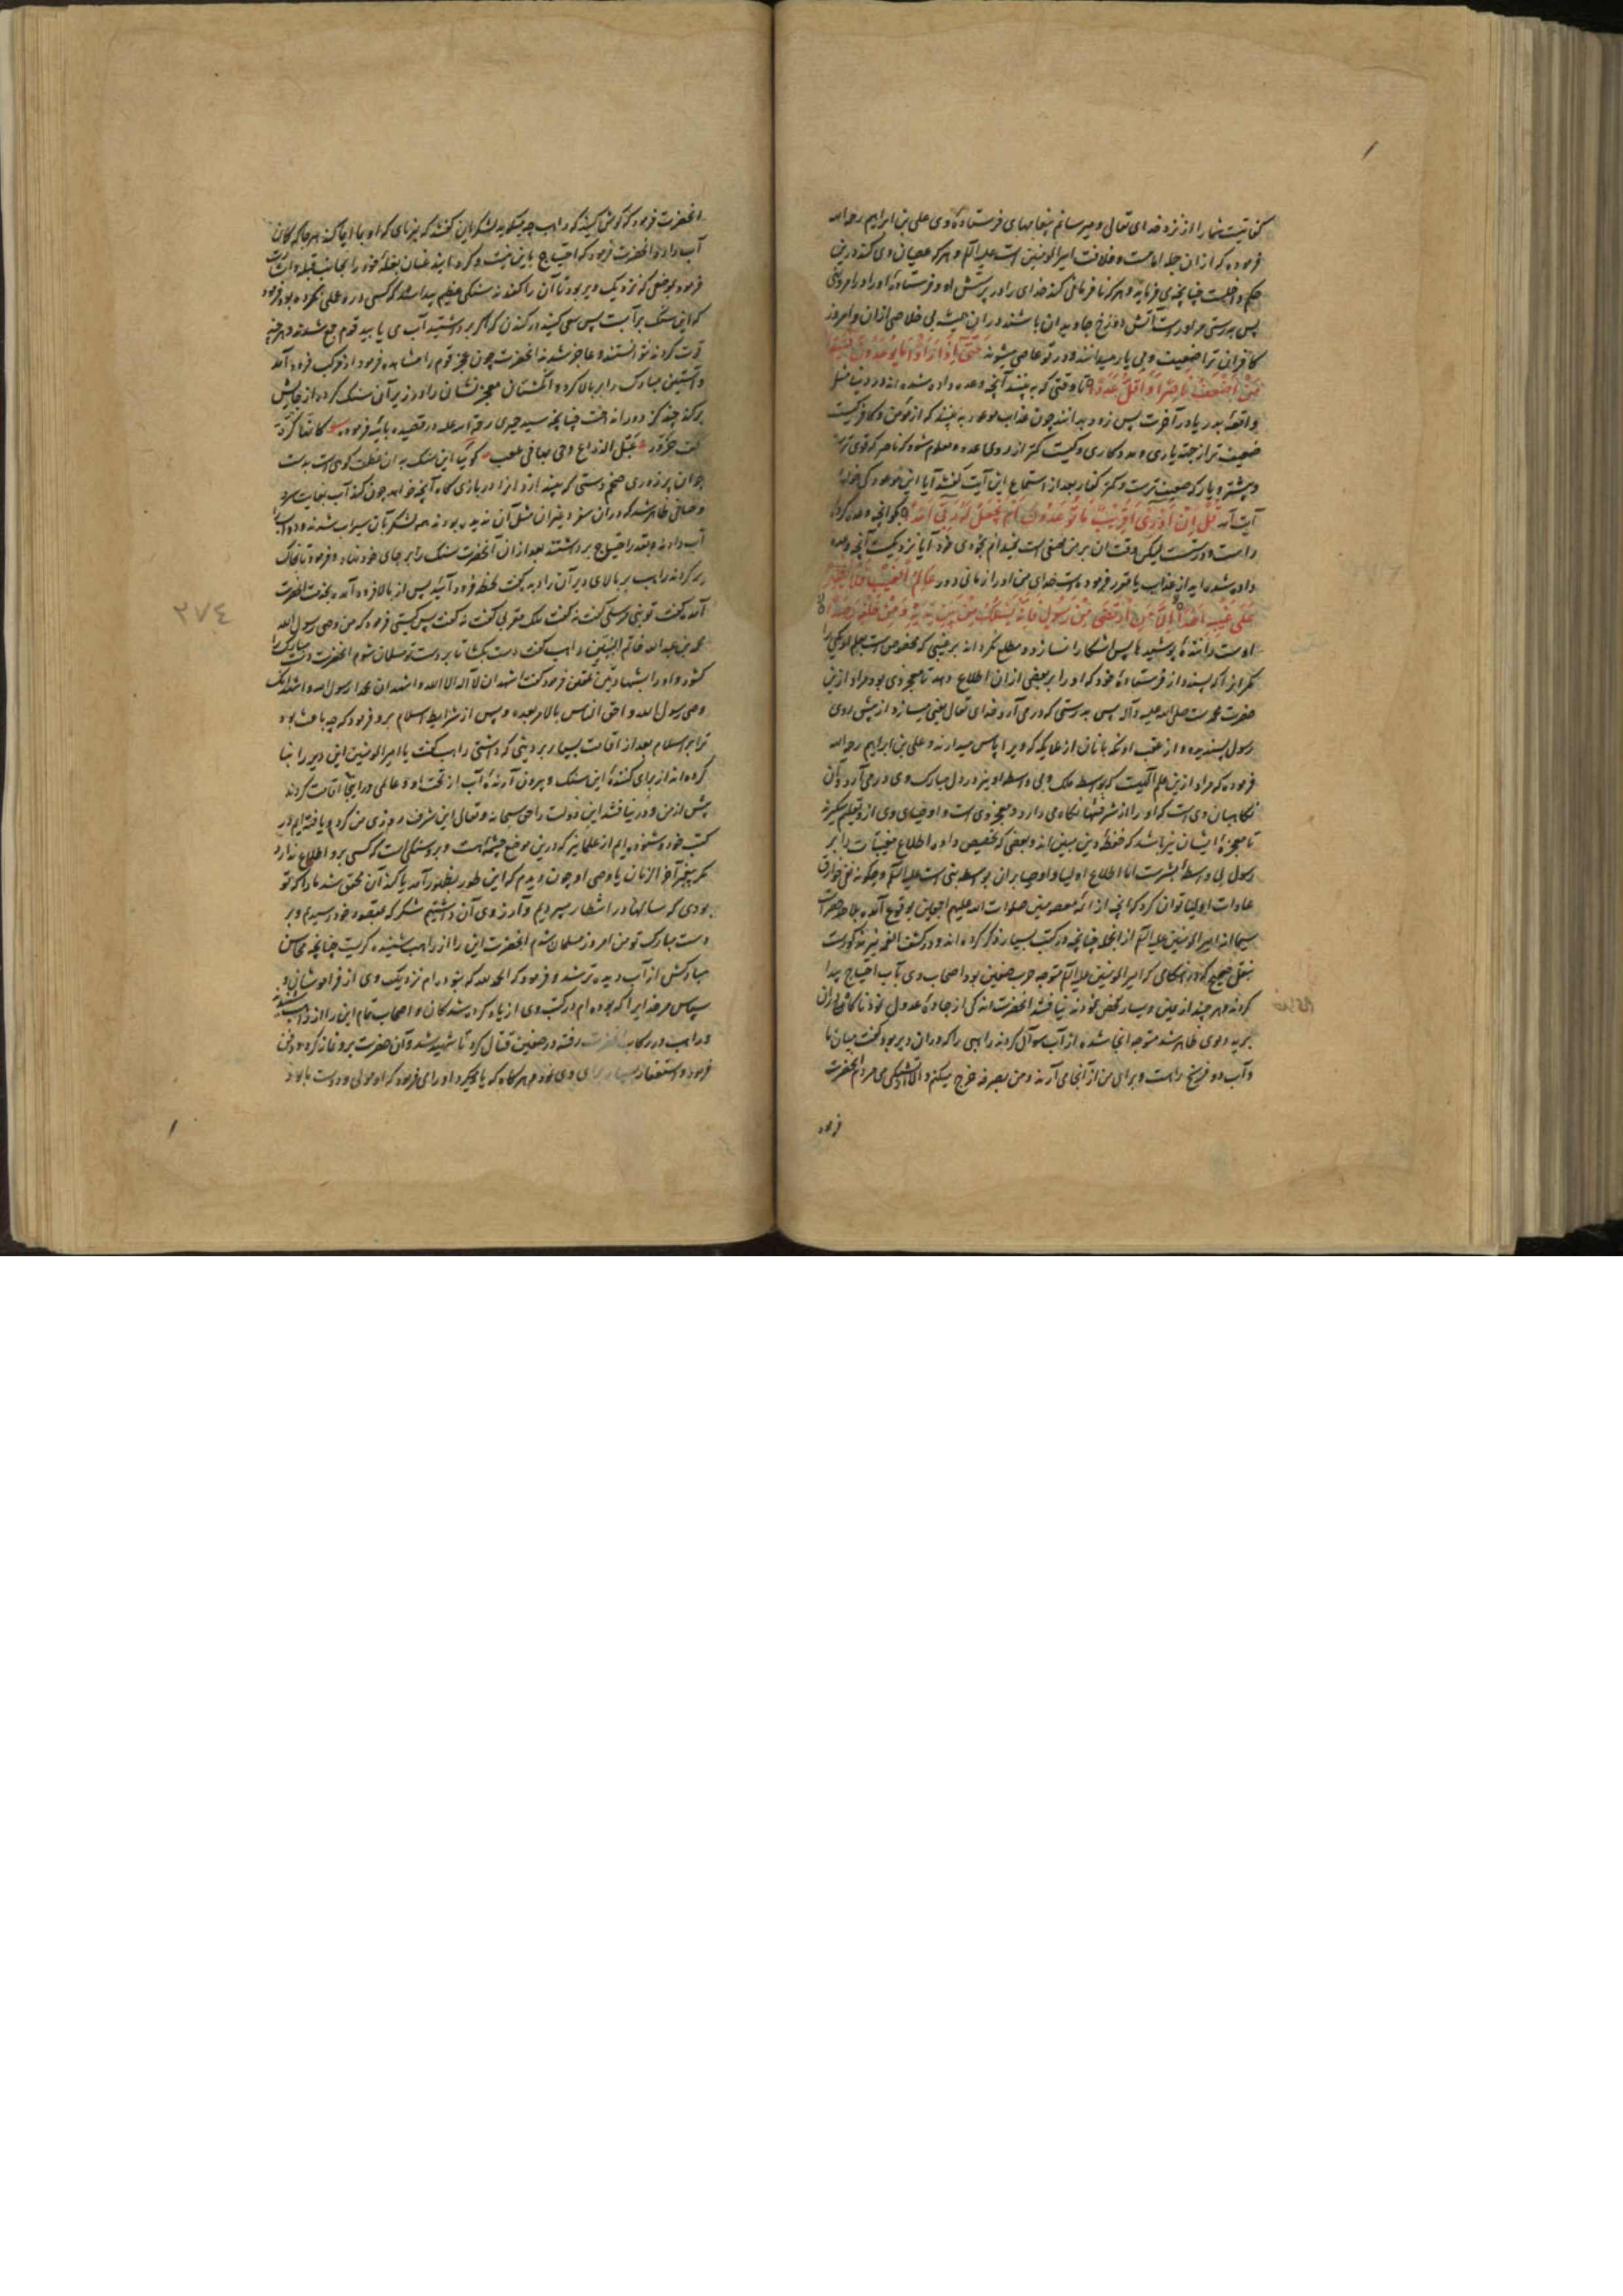 کفانیت شما را از نزد خدای تعالی و میرسانم پیغامهای فرستاده او و علی بن ابراهیم رحمه الله
فرموده که از ان جمله امامت و خلافت امیرالمومنین است علیه السلام و هر که عصیان وی کند درین
حکم داخلست چنانچه می فرماید و هر که نافرمانی کند خدای را در پرستش او و فرستاده او را در امر و نهی
پس بدرستی مر او راست آتش دوزخ جاویدان باشند در ان همیشه بی خلاصی از ان و امروز
کافران ترا ضعیف و بی یار میدانند و در تو عاصی میشوند حَتَّى إِذَا رَأَوْا مَا يُوعَدُونَ فَسَيَعْلَمُونَ
مَنْ أَضْعَفُ نَاصِرًا وَأَقَلُّ عَدَدًا تا وقتی که به بینند آنچه وعده داده شده اند در دنیا مثل
واقعه بدر یا در آخرت پس زود بدانند چون عذاب موعود به بینند که از مومن و کافر کیست
ضعیف تر از جهة یاری و مددکاری و کیست کمتر از روی عدد و معلوم شود که ناصر که قوی ترست
و بیشتر و یار که ضعیف ترست و کمتر کفار بعد از استماع این آیت گفتند آیا این موعود کی خواهد
آیت آمد قُلْ إِنْ أَدْرِي أَقَرِيبٌ مَا تُوعَدُونَ أَمْ يَجْعَلُ لَهُ رَبِّي أَمَدًا بگو آنچه وعده کرده
راست و درستست لیکن وقت ان بر من مخفی است نمیدانم بخودی خود آیا نزدیکست آنچه وعده
داده شده اید از عذاب یا مقرر فرموده است خدای من او را زمانی دور عَالِمُ الْغَيْبِ فَلَا يُظْهِرُ
عَلَى غَيْبِهِ أَحَدًا إِلَّا مَنِ ارْتَضَى مِنْ رَسُولٍ فَإِنَّهُ يَسْلُكُ مِنْ بَيْنِ يَدَيْهِ وَمِنْ خَلْفِهِ رَصَدًا
اوست داننده پوشیدها پس آشکارا نسازد و مطلع نگرداند بر غیبی که مخصوص است بعلم او یکی را
مگر انرا که پسندد از فرستاده خود که او را بر بعضی از ان اطلاع دهد تا معجز وی بود و مراد ازین
حضرت محمدست صلی الله علیه وآله پس بدرستی که در می آرد خدای تعالی یعنی میسازد از پیش روی
رسول پسندیده و از عقب او نگهبانان از ملایکه که ویرا پاس میدارند و علی بن ابراهیم رحمه الله
فرموده که مراد ازین علم آلهیست که بواسطه ملک و بی واسطه او نیز در دل مبارک وی در می آرد و ان
نگاهبان وی است که او را از شر فتنها نگاه می دارد و معجز وی است و اوصیای وی از و تعلم میگیرند
تا معجزه ایشان نیز باشد که حفظه دین مبین اند و بعضی که تخصیص داده اطلاع مغیبات را بر
رسول بی واسطه بشرست اما اطلاع اولیا و اوصیا بران بواسطه نبی است علیه السلام و چگونه نفی خوارق
عادات اولیا توان کرد که آنچه از ائمه معصومین صلوات الله علیهم اجمعین بوقوع آمده
سیما از امیرالمومنین علیه السلام از انجمله چنانچه در کتب بسیار ذکر کرده اند و در کشف الغمه نیز مذکورست
بنقل صحیح که در هنگامی که امیرالمومنین علیه السلام متوجه حرب صفین بود اصحاب وی بآب احتیاج پیدا
کردند و هر چند از یمین و یسار تفحص نمودند نیافتند آنحضرت اندکی از جاده عدول نمود ناگاه در ان
بریه دیری ظاهر شد متوجه انجا شده از آب سوال کردند راهبی را که در ان دیر بود گفت میان ما
و آب دو فرسخ راهست و برای من از آنجا می آرند و من بصرفه خرج میکنم و الا از تشنگی می مردم آنحضرت
فرمود
آنحضرت فرمود که گوش کنید که راهب چه میگوید لشکریان گفتند که بفرمای که او بما ایما کند هر جا که مکان
آب دارد آنحضرت فرمود که احتیاج باین نیست و گردانید عنان بغله خود را بجانب قبله و اشارت
فرمود بموضعی که نزدیک دیر بود تا آن را کندند سنگی عظیم پیدا شد که کسی در و عملی نکرده بود فرمود
که این سنگ بر آبست پس سعی کنید در کندن که اگر برداشتید آب می یابید قوم جمع شدند و هر چند
قوت کردند نتوانستند و عاجز شدند آنحضرت چون عجز قوم را مشاهده فرمود از مرکب فرود آمد
و آستین مبارک را بر بالا کرد و انگشتان معجز نشان را در زیر آن سنگ کرده از جایش
برکند و چند گز دور انداخت چنانچه سید حمیری رحمة الله علیه در قصیده بائیه فرموده فکانها کرة
بکف حزور عبل الذراع دحی بها فی ملعب گویا این سنگ به ان عظمت گویی است بدست
جوان پر زوری ضخیم دستی که بیندازد انرا در بازی گاه آنچه خواهد چون کندند آب بغایت سرد
و صافی ظاهر شد که در ان سفر دیگران مثل آن ندیده بودند همه لشکریان سیراب شدند و دواب را
آب دادند و بقدر احتیاج برداشتند بعد از ان آنحضرت سنگ را بر جای خود نهاد و فرمود تا بخاک
پر کردند راهب بر بالای دیر آن را دید گفت لحظه فرود آئید پس از بالا فرود آمده بخدمت آنحضرت
آمد گفت تو نبی مرسلی گفت نه گفت ملک مقربی گفت نه گفت پس کیستی فرمود که من وصی رسول الله
محمد بن عبد الله خاتم النبیین راهب گفت دست بگشا تا بر دست تو مسلمان شوم آنحضرت دست مبارک را
گشود و او را بشهادتین تلقین فرمود گفت اشهد ان لا اله الا الله و اشهد ان محمدا رسول الله و اشهد انک
وصی رسول الله و احق الناس بالامر بعده و پس از شرایط اسلام برو فرمود که چه باعث بود
ترا بر اسلام بعد از اقامت بسیار بر دینی که داشتی راهب گفت یا امیرالمومنین این دیر را بنا
کرده اند از برای کننده این سنگ و بیرون آرنده آب از تحت او و عالمی در اینجا اقامت کردند
پیش از من و در نیافتند این دولت را حق سبحانه و تعالی این شرف روزی من کرد و یافته ایم در
کتب خود و شنوده ایم از علما نیز که درین موضع چشمه است و برو سنگی است که کسی برو اطلاع ندارد
مگر پیغمبر آخر الزمان یا وصی او چون دیدم که این طور بظهور آمد یا کندن آن محقق شد ما را که تو
بودی که سالها در انتظار میبردیم و آرزوی آن داشتیم شکر که بمقصود خود رسیدم و بر
دست مبارک تو من امروز مسلمان شدم آنحضرت این را از راهب شنیده گریست چنانچه محاسن
مبارکش از آب دیده تر شد و فرمود که الحمد لله که نبوده ام نزدیک وی از فراموشان و
سپاس مر خدایرا که بوده ام در کتب وی از یاد کرده شدگان و اصحاب تمام این را از راهب شنیدند
و راهب در رکاب آنحضرت رفته در صفین قتال کرد تا شهید شد و آن حضرت برو نماز کرد و دفن
فرمود و استغفار بسیار برای وی نمود و هر گاه که یاد میکرد او را می فرمود که او مولی و دوست ما بود
٢٧٤